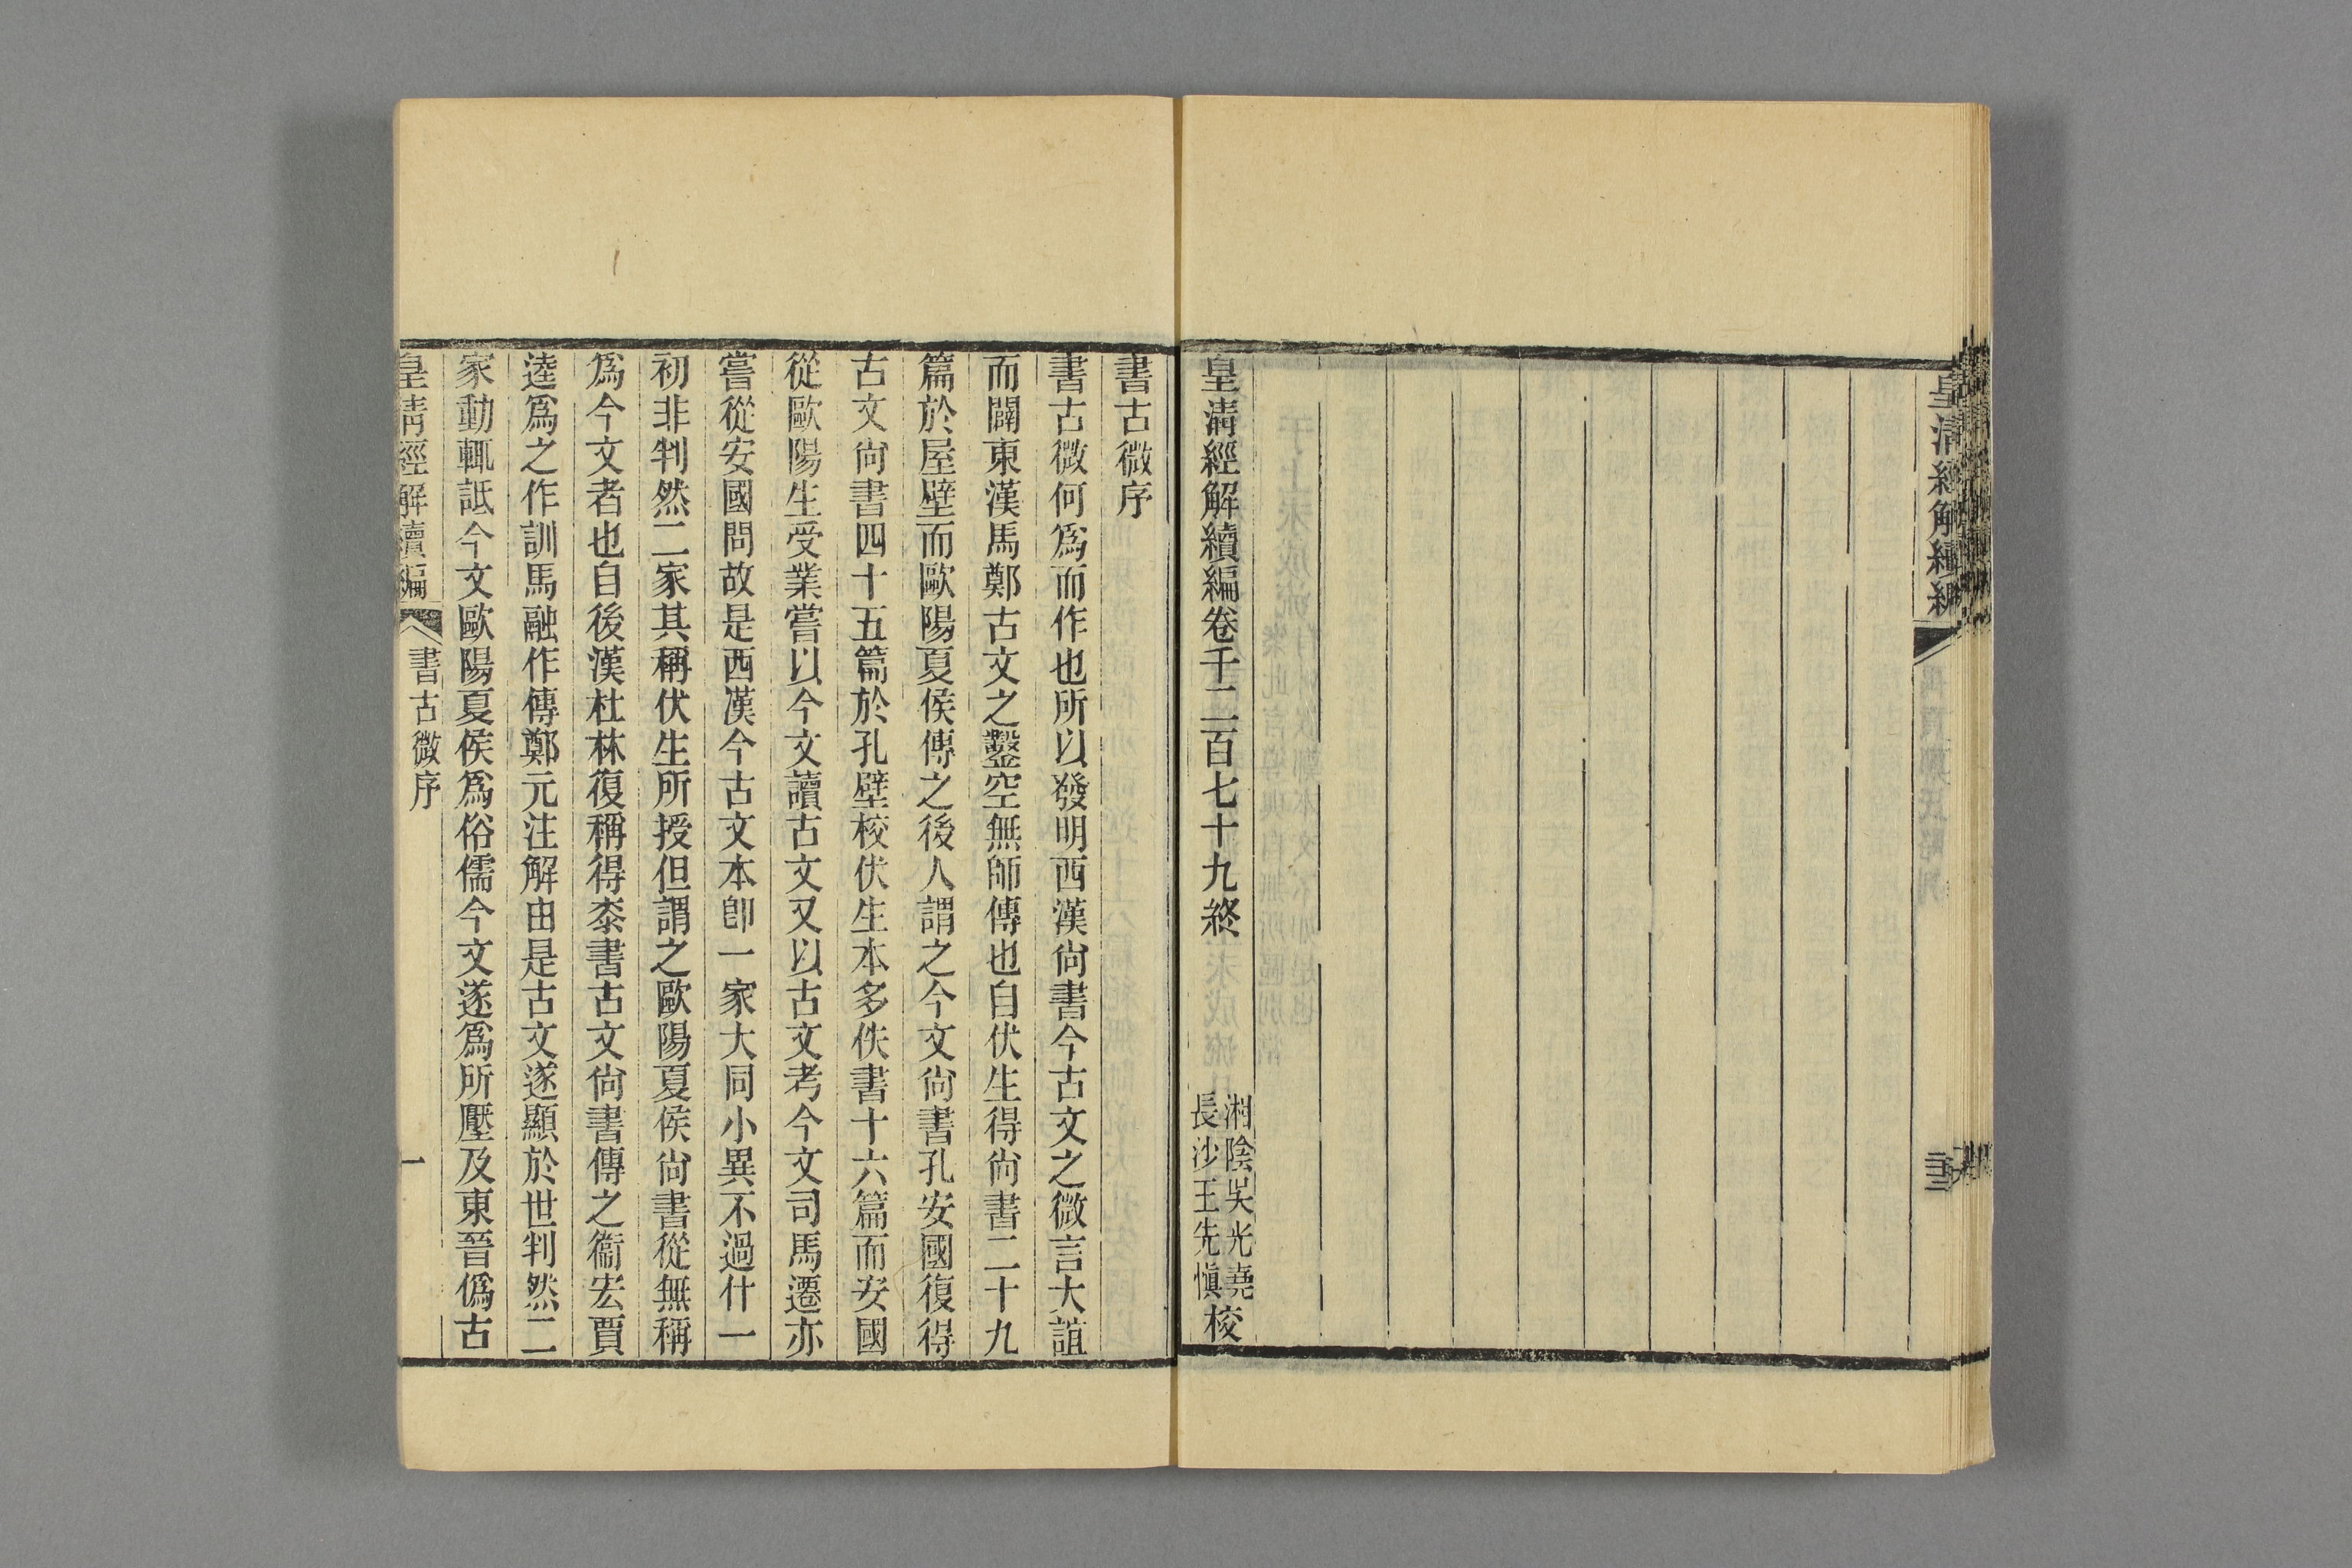 皇清經解續編
皇清經解續編卷千二百七十九終
湘陰吳光堯
長沙王先愼
校
書古微序
書古微何爲而作也所以發明西漢尙書今古文之微言大誼
而闢東漢馬鄭古文之鑿空無師傳也自伏生得尙書二十九
篇於屋壁而歐陽夏侯傳之後人謂之今文尙書孔安國復得
古文尙書四十五篇於孔壁校伏生本多佚書十六篇而安國
從歐陽生受業嘗以今文讀古文又以古文考今文司馬遷亦
嘗從安國問故是西漢今古文本卽一家大同小異不過什一
初非判然二家其稱伏生所授但謂之歐陽夏侯尙書從無稱
爲今文者也自後漢杜林復稱得桼書古文尙書傳之衞宏賈
逵爲之作訓馬融作傳鄭元注解由是古文遂顯於世判然二
家動輒詆今文歐陽夏侯爲俗儒今文遂爲所壓及東晉僞古
皇淸經解續編
書古微序
一